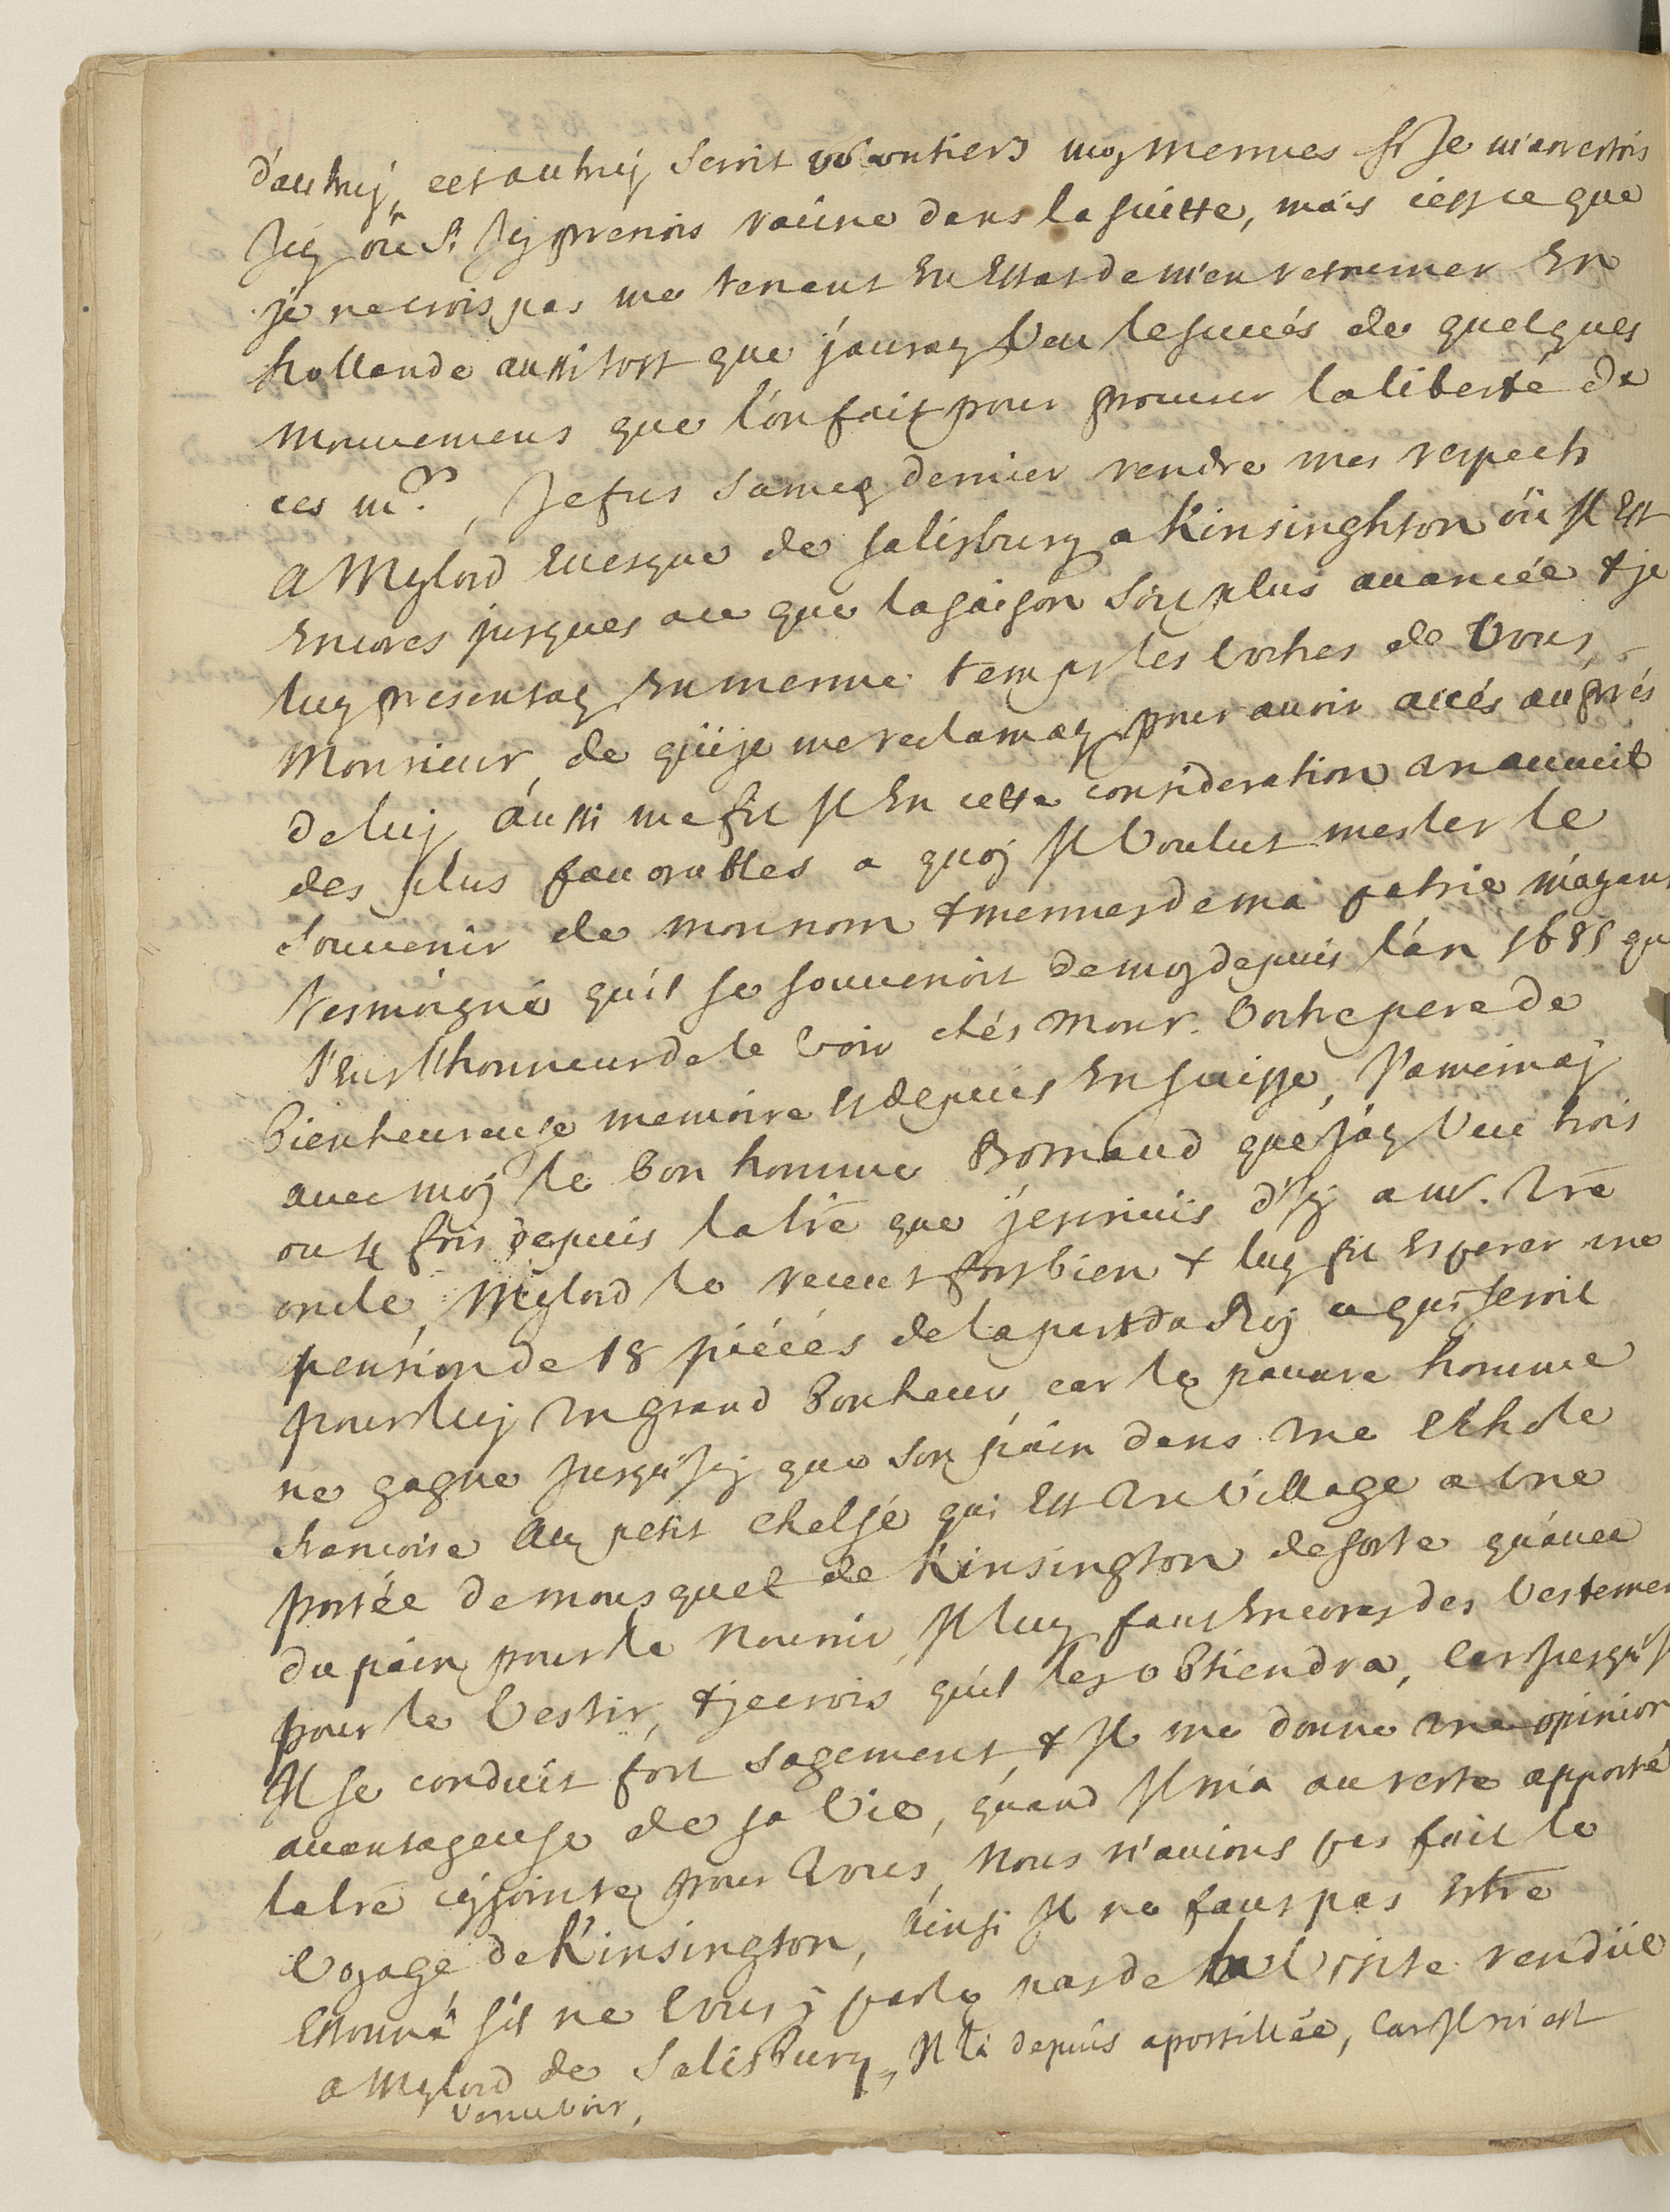 d'autruj, cet autruj seroit volontiers moy mermes si Je m'arrestois
Jcÿ où si Jcy prenois racine dans la suitte, mais c'est ce que
je ne crois pas me tenant En Estat de m'en retourner En
hollande aussi tost que j'auray Veu le succés de quelques
mouvemens que l'on fait pour procurer la liberté de
ces mrs., Je fus samedy dernier rendre mes respects
a Mylord Evesque de salisbury a Kinsinghton où Jl Est
Encores jusques a ce que la saison soit plus avancée & je
luy presentay En mermes temps les vostres de Vous,
Monsieur de qui je me reclamay pour avoir accés auprés
de luj, aussi me fit Jl En cette consideration un accueil
des plus favorables a quoj Jl Voulut mesler le
souvenir de mon nom & mermes de ma patrie m'ayant
tesmoigné qu'il se souvenoit de moy depuis l'an 1685 que
J'eus l'honneur de le voir chés Monsr. Vostre pere de
bienheureuse memoire Et depuis En suisse, J'amenaj
avec moj le bon homme Bornaud que J'ay Veu trois
ou 4 fois depuis la lre que j'escrivis d'Jcj a mr. Vre
oncle, Mylord le receut fort bien & luy fit Esperer une
pension de 18 piéces de la part du Roj ce qui seroit
pour luj un grand bonheur car le pauvre homme
ne gagne jusqu'Jcj que son pain dans une Eschole
francoise au petit chelsé qui Est un Village a une
portée de mousquet de Kinsington de sorte qu'avec
du pain pour le nourrir Jl luy faut Encores des Vestemens
pour le Vestir, & je crois qu'il les obtiendra, Car jusqu'Jcj
Jl se conduit fort sagement, & Jl me donne une opinion
avantageuse de sa Vie, quand Jl m'a au reste apporté
la lre cÿjointe pour Vous, Nous n'avions pas fait le
Voyage de Kinsington, ainsi Jl ne faut pas Estre
Estonné s'il ne Vous j parle pas de la Visite rendüe
a Mylord de Salisbury, Jl l'a depuis apostillée, Car Jl m'est
venu voir,